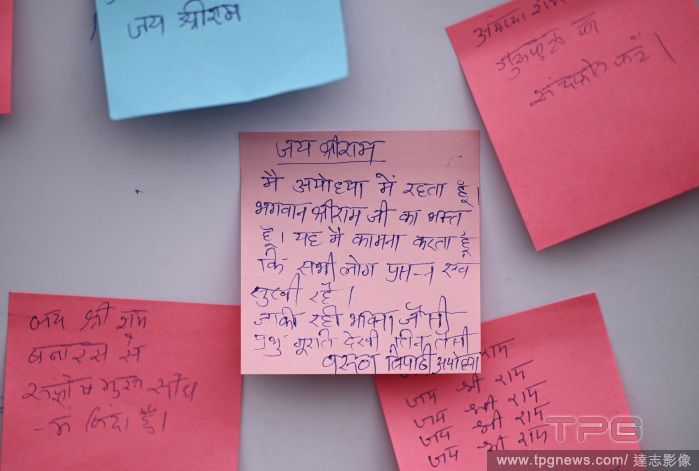 जय श्रीराम
अयोध्या
गुरुकुल का
करें।
जय श्रीराम
मै अयोध्या में रहता हूँ।
भगवान श्रीराम जी का भक्त
हूँ। यह मै कामना करता हूँ
कि सभी लोग प्रसन्न एवं
सुखी रहें।
जाकी रही भावना जैसी
प्रभु मूरति देखी तिन तैसी
त्रिपाठी अयोध्या
जय श्री राम
बनारस से
हूँ।
राम
जय श्री राम
जय श्री राम
जय श्री राम
जय श्री राम
TPG
www.tpgnews.com/ 達志影像